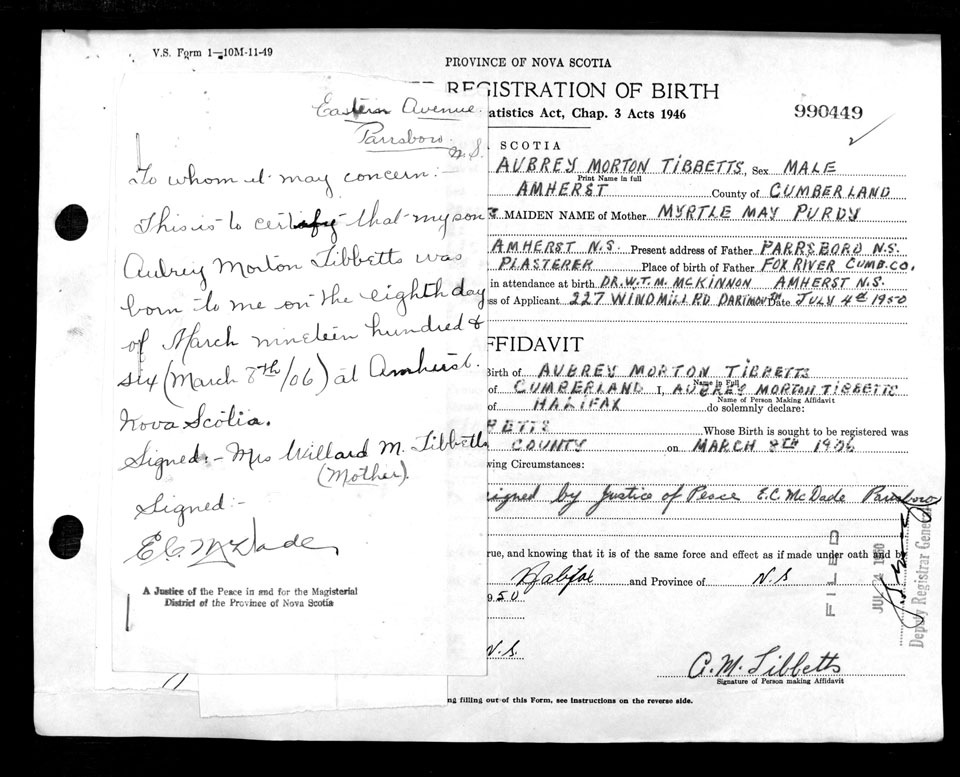 V.S. Form 1—10M-11-49
Eastern Avenue.
Parrsboro.
N.S.
To whom it may concern:-
This is to certify that my son
Aubrey Morton Tibbetts was
born to me on the eighth day
of March nineteen hundred &
six (March 8th/06) at Amherst.
Nova Scotia.
Signed:- Mrs Willard M. Tibbetts
(Mother).
Signed:-
E.C. McDade
A Justice of the Peace in and for the Magisterial
District of the Province of Nova Scotia
PROVINCE OF NOVA SCOTIA
REGISTRATION OF BIRTH
atistics Act, Chap. 3 Acts 1946
990449
SCOTIA
AUBREY MORTON TIBBETTS, Sex MALE
Print Name in full
AMHERST County of CUMBERLAND
MAIDEN NAME of Mother MYRTLE MAY PURDY
AMHERST N.S. Present address of Father PARRSBORO N.S.
PLASTERER Place of birth of Father FOX RIVER CUMB. CO.
in attendance at birth DR. W.T.M. McKINNON AMHERST N.S.
ss of Applicant 227 WINDMILL RD. DARTMOUTH Date JULY 4th 1950
FFIDAVIT
Birth of AUBREY MORTON TIBBETTS
Name in Full
of CUMBERLAND I, AUBREY MORTON TIBBETTS
Name of Person Making Affidavit
of HALIFAX do solemnly declare:
BETTS Whose Birth is sought to be registered was
COUNTY on MARCH 8TH 1906
wing Circumstances:
signed by Justice of Peace E.C. McDade Parrsboro
rue, and knowing that it is of the same force and effect as if made under oath and by
Halifax and Province of N.S
950
N.S.
FILED
JUL 4 1950
Deputy Registrar General
A.M. Tibbetts
Signature of Person making Affidavit
ng filling out of this Form, see instructions on the reverse side.